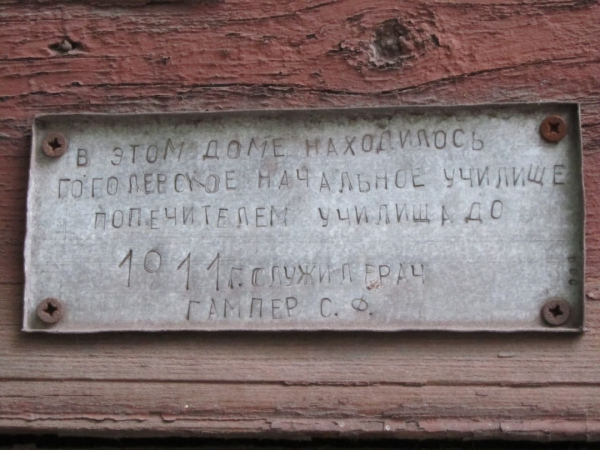 В ЭТОМ ДОМЕ НАХОДИЛОСЬ
ГОГОЛЕВСКОЕ НАЧАЛЬНОЕ УЧИЛИЩЕ
ПОПЕЧИТЕЛЕМ УЧИЛИЩА ДО
1911 Г. СЛУЖИЛ ВРАЧ
ГАМПЕР С. Ф.